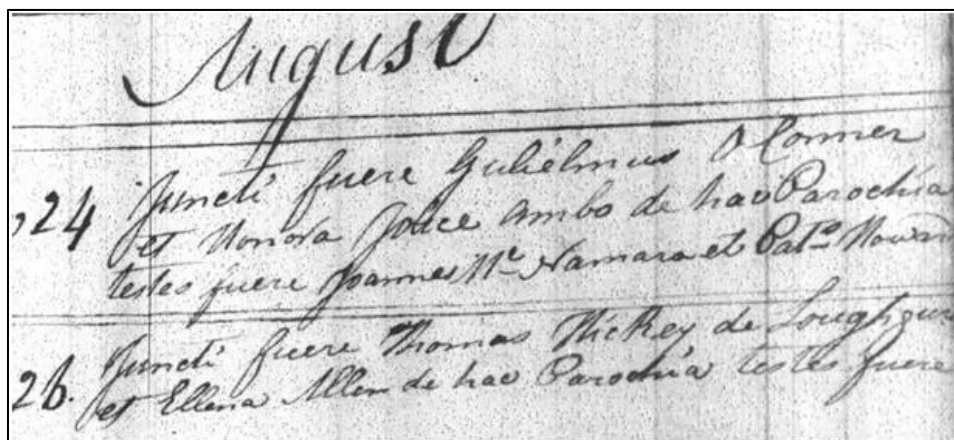 August
24 Juncti fuere Guliélmus O Conner
et Honora Joice ambo de hac Parochia
testes fuere Joannes Mc Namara et Pat.o Howard
26. Juncti fuere Thomas Hickey de Lough
et Ellena Allen de hac Parochia testes fuere